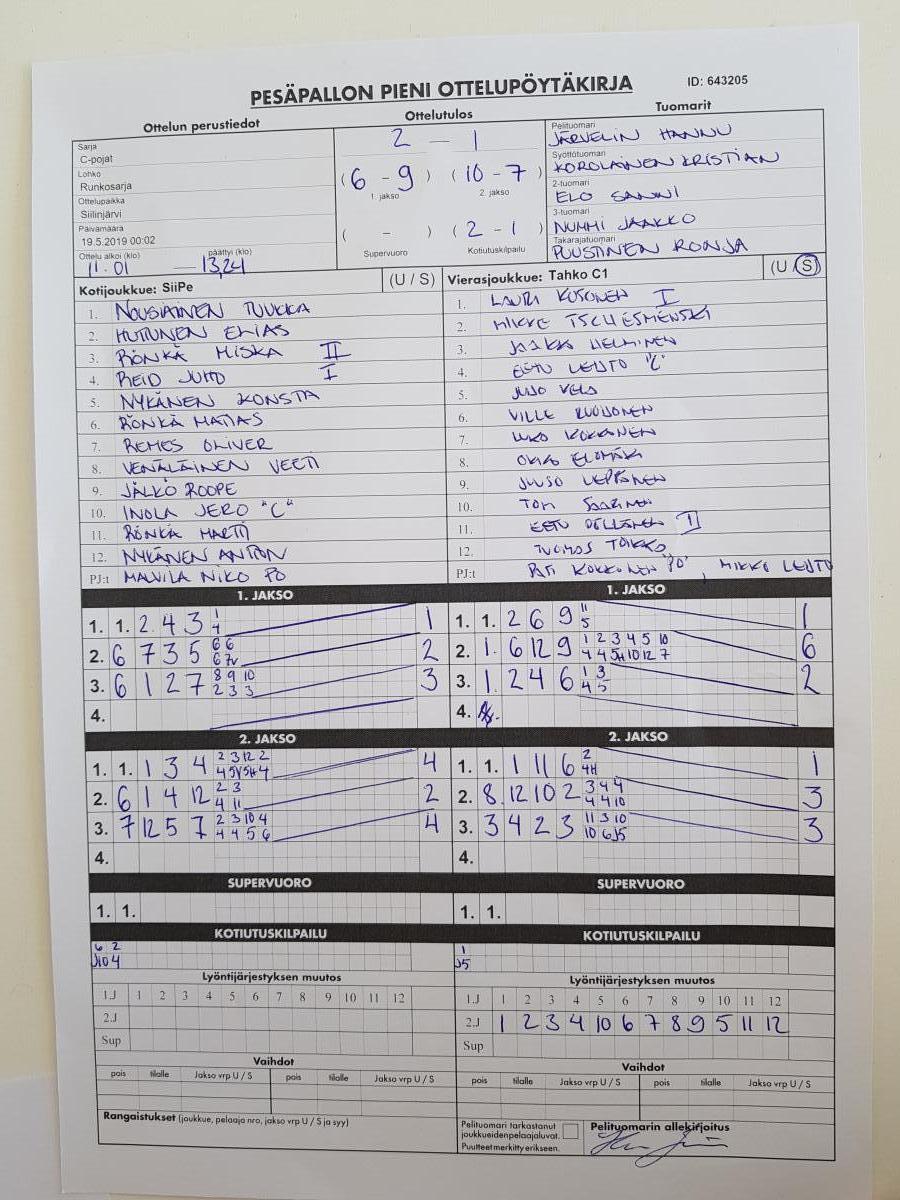 PESÄPALLON PIENI OTTELUPÖYTÄKIRJA
ID: 643205
Ottelun perustiedot
Ottelutulos
Tuomarit
Sarja
C-pojat
Lohko
Runkosarja
Ottelupaikka
Siilinjärvi
Päivämäärä
19.5.2019 00:02
Ottelu alkoi (klo) päättyi (klo)
11.01 — 13,24
2 — 1
(6 - 9) (10 - 7)
1. jakso 2. jakso
( - ) (2 - 1)
Supervuoro Kotiutuskilpailu
Pelituomari
JÄRVELIN HANNU
Syöttötuomari
KOROLAINEN KRISTIAN
2-tuomari
ELO SANNI
3-tuomari
NUMMI JAAKKO
Takarajatuomari
PUUSTINEN RONJA
Kotijoukkue: SiiPe (U / S)
1. NOUSIAINEN TUUKKA
2. HUTTUNEN ELIAS
3. RÖNKÄ MISKA II
4. REID JUHO I
5. NYKÄNEN KONSTA
6. RÖNKÄ MATIAS
7. REMES OLIVER
8. VENÄLÄINEN VEETI
9. JÄLKÖ ROOPE
10. INOLA JERO "C"
11. RÖNKÄ MARTTI
12. NYKÄNEN ANTON
PJ:t MALVILA NIKO PO
Vierasjoukkue: Tahko C1 (U / S)
1. LAURI KOSONEN I
2. MIKKE TSCHESMENSKI
3. JAAKKO HELMINEN
4. EETU LEHTO "C"
5. JUSO
6. VILLE
7. KOKKONEN
8. ELOMÄKI
9. JUUSO LEPPÄNEN
10. TOMI SAARINEN
11. EETU PELLONEN I
12. TUOMAS TOIKKO
PJ:t KOKKONEN "PO", MIKKE LEHTO
1. JAKSO
1. 1. 2 4 3 1 1
4
2. 6 7 3 5 6 6 2
6 7v
3. 6 1 2 7 8 9 10 3
2 3 3
4.
1. JAKSO
1. 1. 2 6 9 11 1
5
2. 1. 6 12 9 1 2 3 4 5 10 6
4 4 5H 10 12 7
3. 1. 2 4 6 1 3 2
4 5
4.
2. JAKSO
1. 1. 1 3 4 2 3 12 2 4
4 5V 5H 4
2. 6 1 4 12 2 3 2
4 11
3. 7 12 5 7 2 3 10 4 4
4 4 5 6
4.
2. JAKSO
1. 1. 1 11 6 2 1
4H
2. 8. 12 10 2 3 4 4 3
4 4 10
3. 3 4 2 3 11 3 10 3
10 6 J5
4.
SUPERVUORO
1. 1.
SUPERVUORO
1. 1.
KOTIUTUSKILPAILU
6 2
J10 4
KOTIUTUSKILPAILU
1
J5
Lyöntijärjestyksen muutos
1.J 1 2 3 4 5 6 7 8 9 10 11 12
2.J
Sup
Lyöntijärjestyksen muutos
1.J 1 2 3 4 5 6 7 8 9 10 11 12
2.J 1 2 3 4 10 6 7 8 9 5 11 12
Sup
Vaihdot
pois tilalle Jakso vrp U / S pois tilalle Jakso vrp U / S
Vaihdot
pois tilalle Jakso vrp U / S pois tilalle Jakso vrp U / S
Rangaistukset (joukkue, pelaaja nro, jakso vrp U / S ja syy)
Pelituomari tarkastanut
joukkueidenpelaajaluvat.
Puutteet merkitty erikseen.
Pelituomarin allekirjoitus